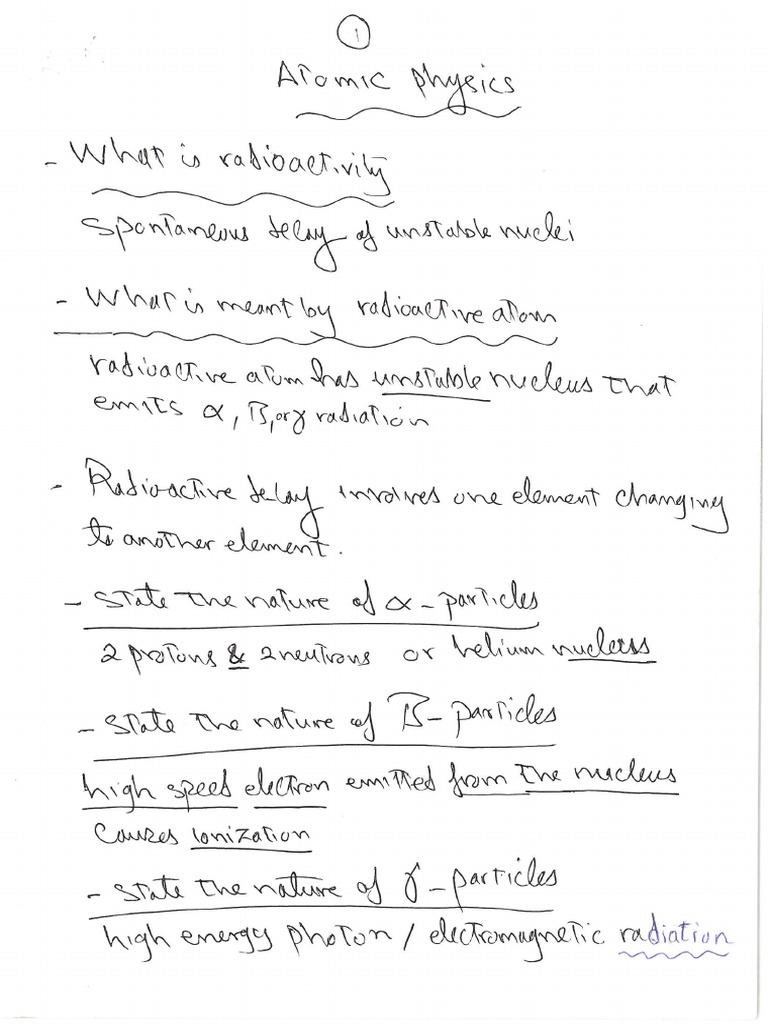 1
Atomic physics
- What is radioactivity
Spontaneous decay of unstable nuclei
- What is meant by radioactive atom
radioactive atom has unstable nucleus that
emits α, β, or γ radiation
- Radioactive decay involves one element changing
to another element.
- State the nature of α - particles
2 protons & 2 neutrons or helium nucleus
- State the nature of β - particles
high speed electron emitted from the nucleus
causes ionization
- State the nature of γ - particles
high energy photon / electromagnetic radiation